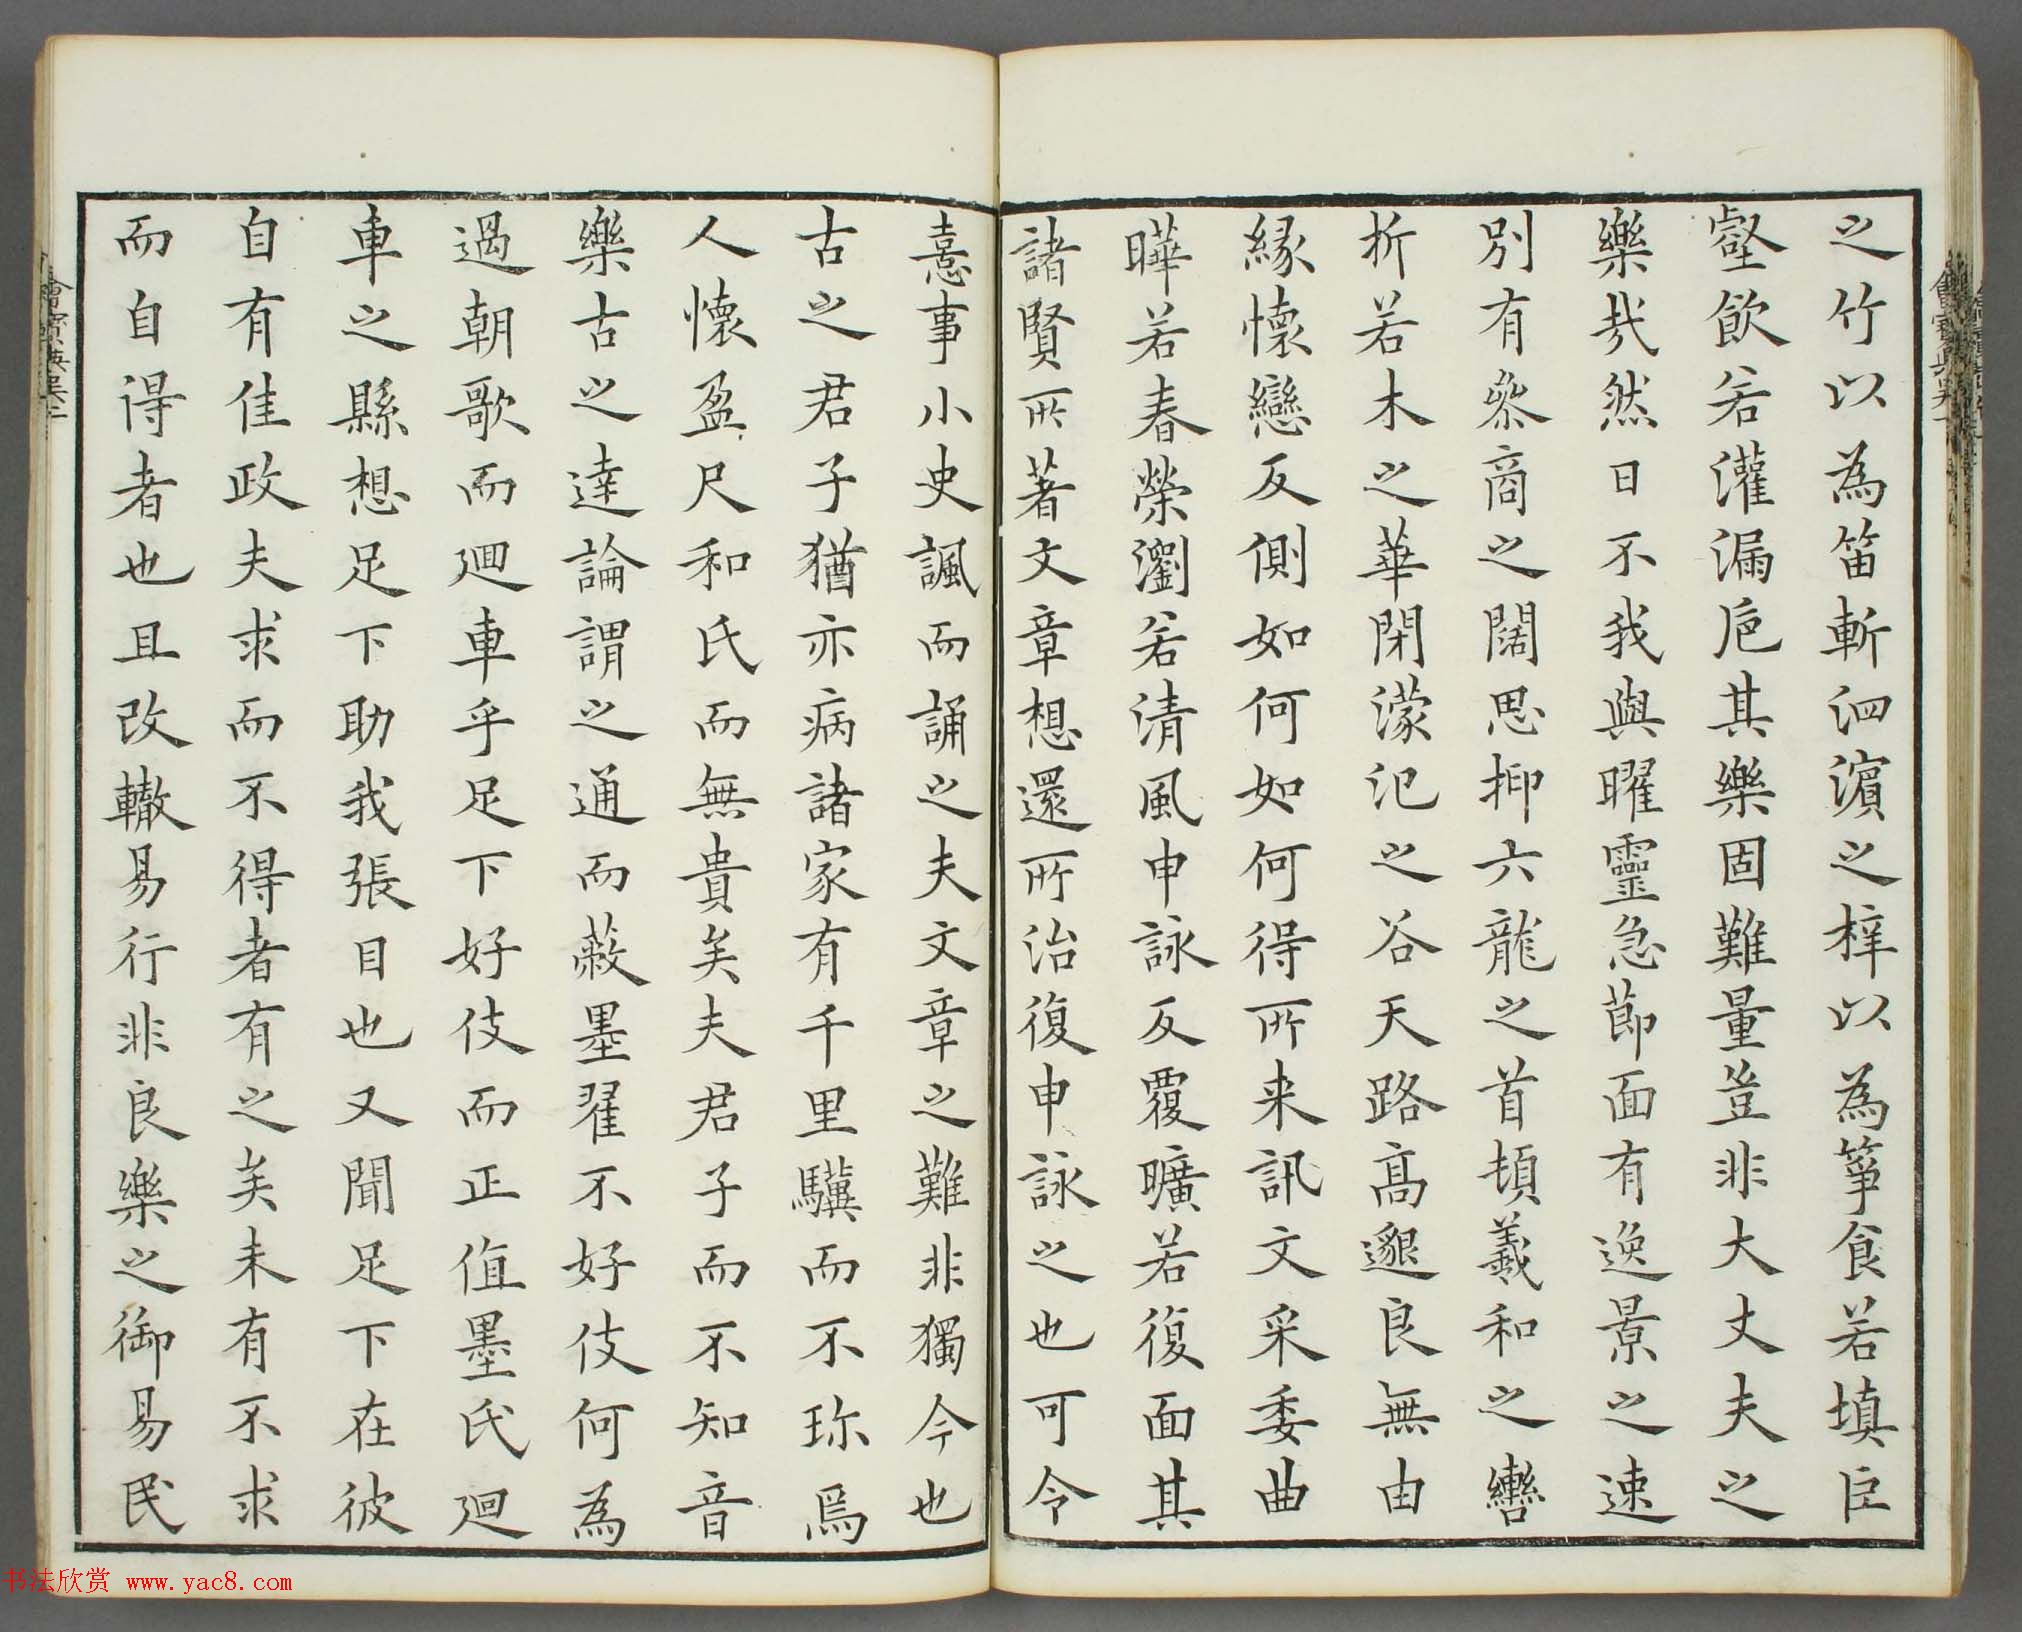 之竹以為笛斬泗濵之梓以為箏食若填巨
壑飲若灌漏巵其樂固難量豈非大丈夫之
樂㦲然日不我與曜靈急莭面有逸景之速
別有叅商之闊思抑六龍之首頓羲和之轡
折若木之華閉濛汜之谷天路髙邈良無由
緣懷戀反側如何如何得所来訊文采委曲
曄若春榮瀏若清風申詠反覆曠若復面其
諸賢所著文章想還所治復申詠之也可令
憙事小史諷而誦之夫文章之難非獨今也
古之君子猶亦病諸家有千里驥而不珎焉
人懷盈尺和氏而無貴矣夫君子而不知音
樂古之達論謂之通而蔽墨翟不好伎何為
過朝歌而廻車乎足下好伎而正值墨氏廻
車之縣想足下助我張目也又聞足下在彼
自有佳政夫求而不得者有之矣未有不求
而自得者也且改轍易行非良樂之御易民
書法欣赏 www.yac8.com